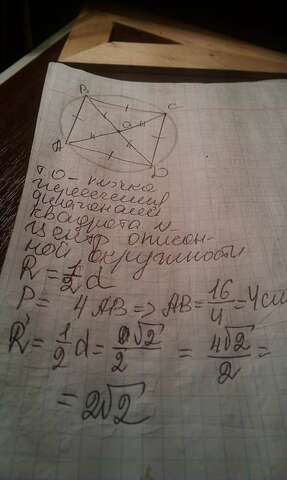 B
C
O
A
D
т О - точка
пересечения
диагоналей
квадрата и
центр описан-
ной окружности
R = 1/2 d
P = 4AB => AB = 16/4 = 4 см
R = 1/2 d = a√2/2 = 4√2/2 =
= 2√2